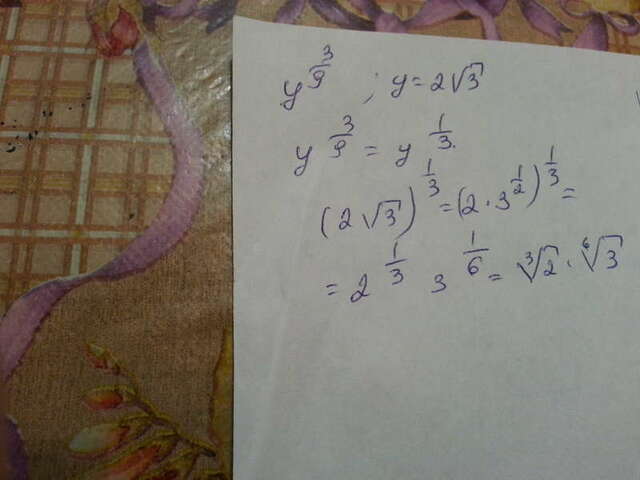 y^{\frac{3}{9}} ; y = 2\sqrt{3}
y^{\frac{3}{9}} = y^{\frac{1}{3}}
(2\sqrt{3})^{\frac{1}{3}} = (2 \cdot 3^{\frac{1}{2}})^{\frac{1}{3}} =
= 2^{\frac{1}{3}} 3^{\frac{1}{6}} = \sqrt[3]{2} \cdot \sqrt[6]{3}